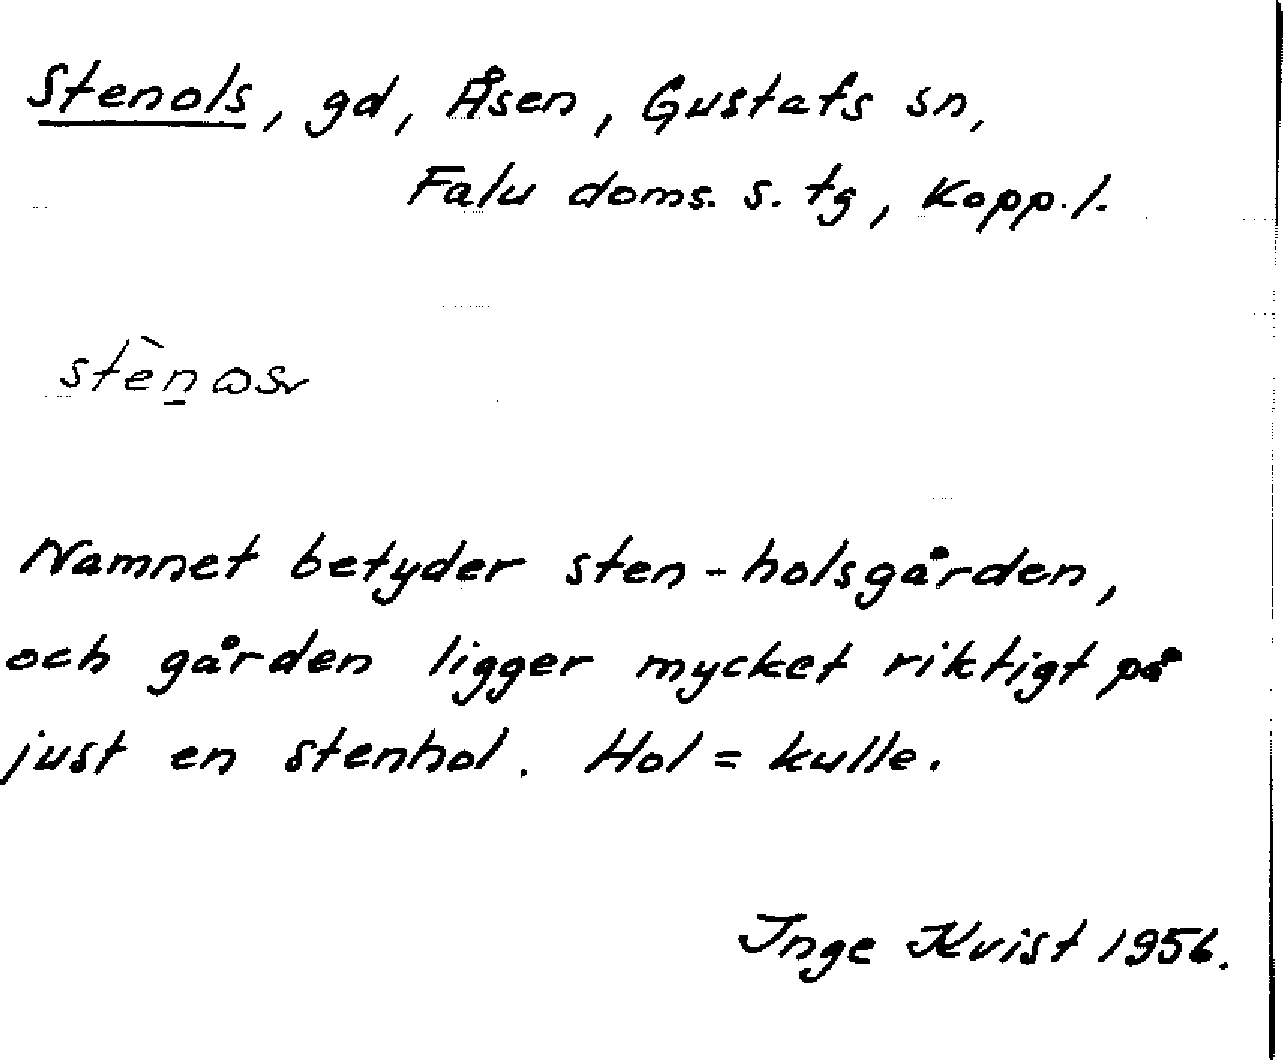 Stenols, gd, Åsen, Gustafs sn,
Falu doms. s. tg, Kopp. l.
Namnet betyder sten-holsgården,
och gården ligger mycket riktigt på
just en stenhol. Hol = kulle.
Inge Kvist 1956.